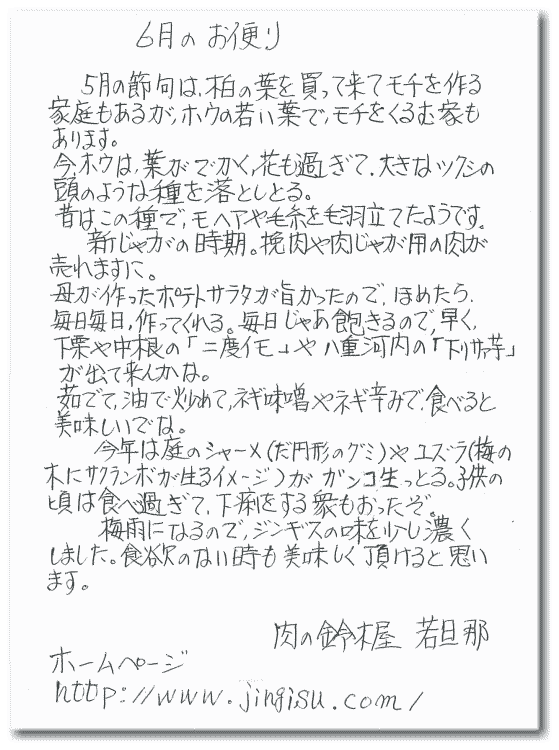 6月のお便り
5月の節句は、柏の葉を買って来てモチを作る
家庭もあるが、ホウの若い葉で、モチをくるむ家も
あります。
今、ホウは、葉がでかく、花も過ぎて、大きなツクシの
頭のような種を落としとる。
昔はこの種で、モヘアや毛糸を毛羽立てたようです。
新じゃがの時期。挽肉や肉じゃが用の肉が
売れますに。
母が作ったポテトサラタが旨かったので、ほめたら、
毎日毎日、作ってくれる。毎日じゃあ飽きるので、早く、
下栗や中根の「二度イモ」や八重河内の「下りサァ芋」
が出て来んかな。
茹でて、油で炒めて、ネギ味噌やネギ辛みで、食べると
美味しいでな。
今年は庭のシャーメ(だ円形のグミ)やユズラ(梅の
木にサクランボが生るイメージ)がガンコ生っとる。子供の
頃は食べ過ぎて、下痢をする衆もおったぞ。
梅雨になるので、ジンギスの味を少し濃く
しました。食欲のない時も美味しく頂けると思い
ます。
肉の鈴木屋 若旦那
ホームページ
http://www.jingisu.com/